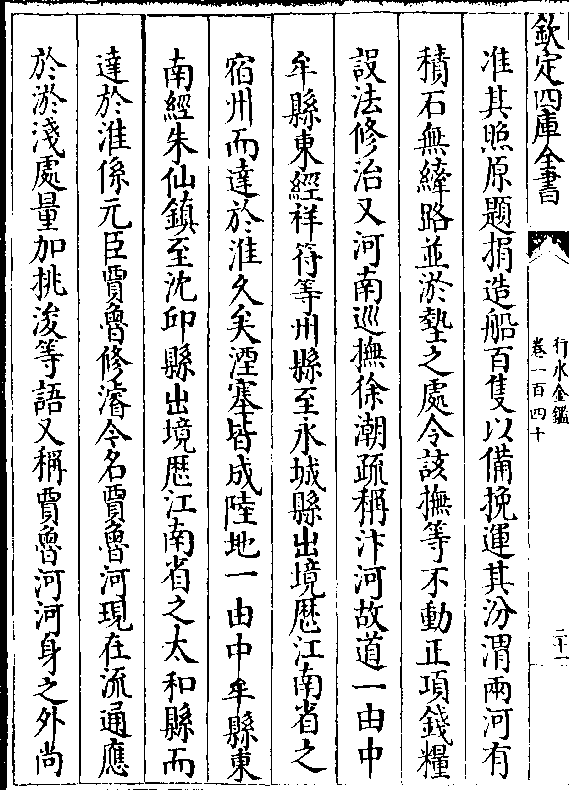 欽定四庫全書
行水金鑑
卷一百四十
二十一
准其照原題捐造船百隻以備挽運其汾渭兩河有
積石無縴路並淤墊之處令該撫等不動正項錢糧
設法修治又河南巡撫徐潮疏稱汴河故道一由中
牟縣東經祥符等州縣至永城縣出境歴江南省之
宿州而達於淮久矣湮塞皆成陸地一由中牟縣東
南經朱仙鎮至沈邱縣出境歴江南省之太和縣而
達於淮係元臣賈魯修濬今名賈魯河現在流通應
於淤淺處量加挑浚等語又稱賈魯河河身之外尚